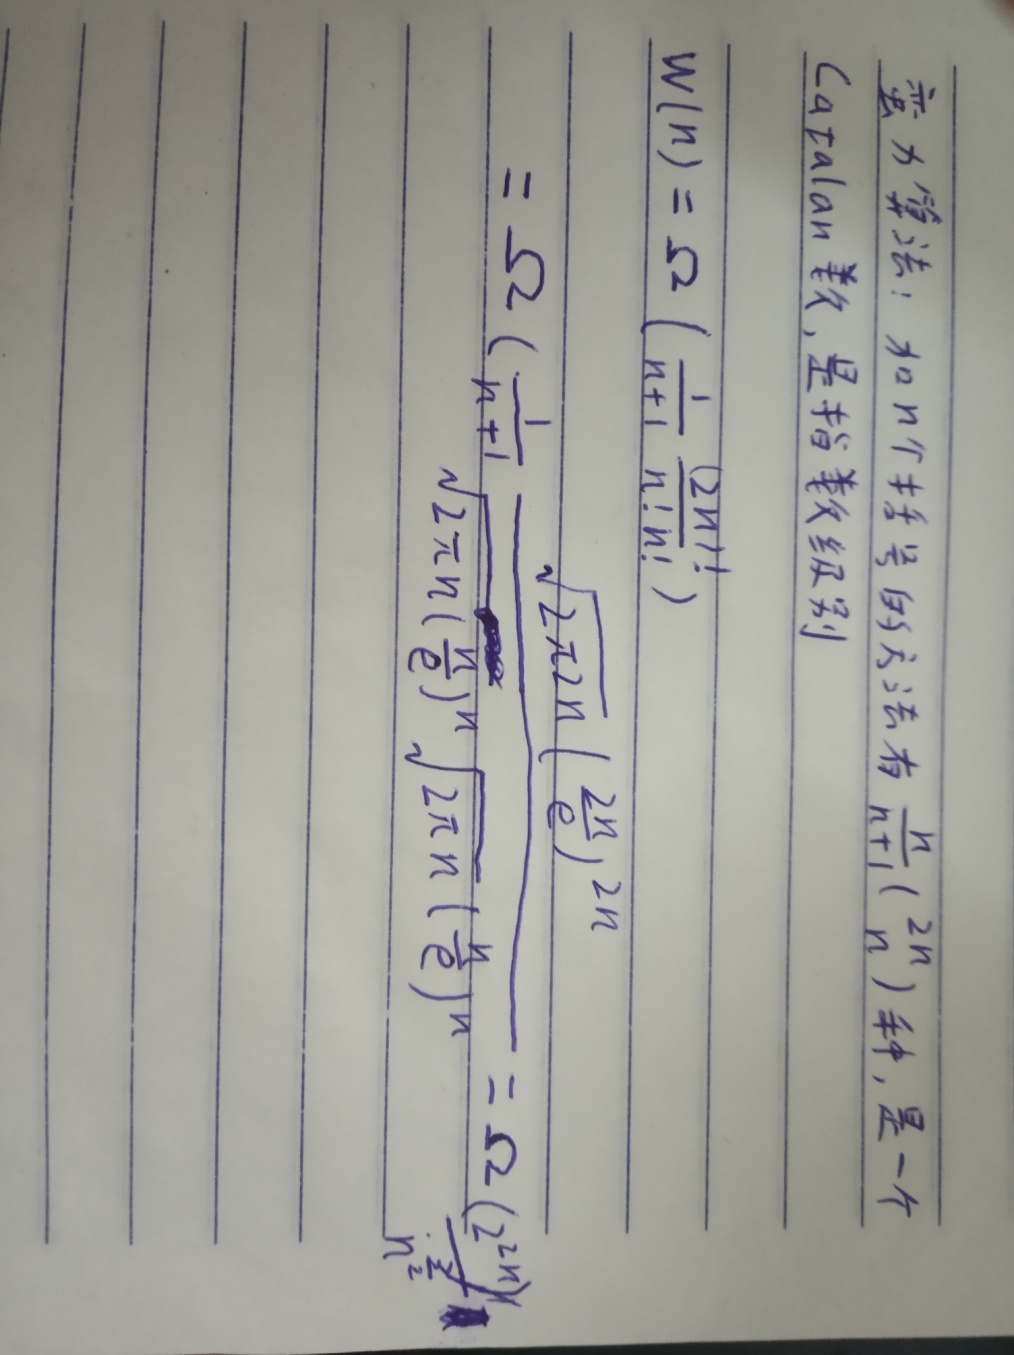 蛮力算法：加n个括号的方法有 n/(n+1) (2n n) 种，是一个
Catalan数，是指数级别
W(n) = Ω( 1/(n+1) (2n)!/(n!n!) )
= Ω( 1/(n+1) √(2π2n)(2n/e)^2n / (√(2πn)(n/e)^n √(2πn)(n/e)^n) = Ω(2^2n / n^(3/2))